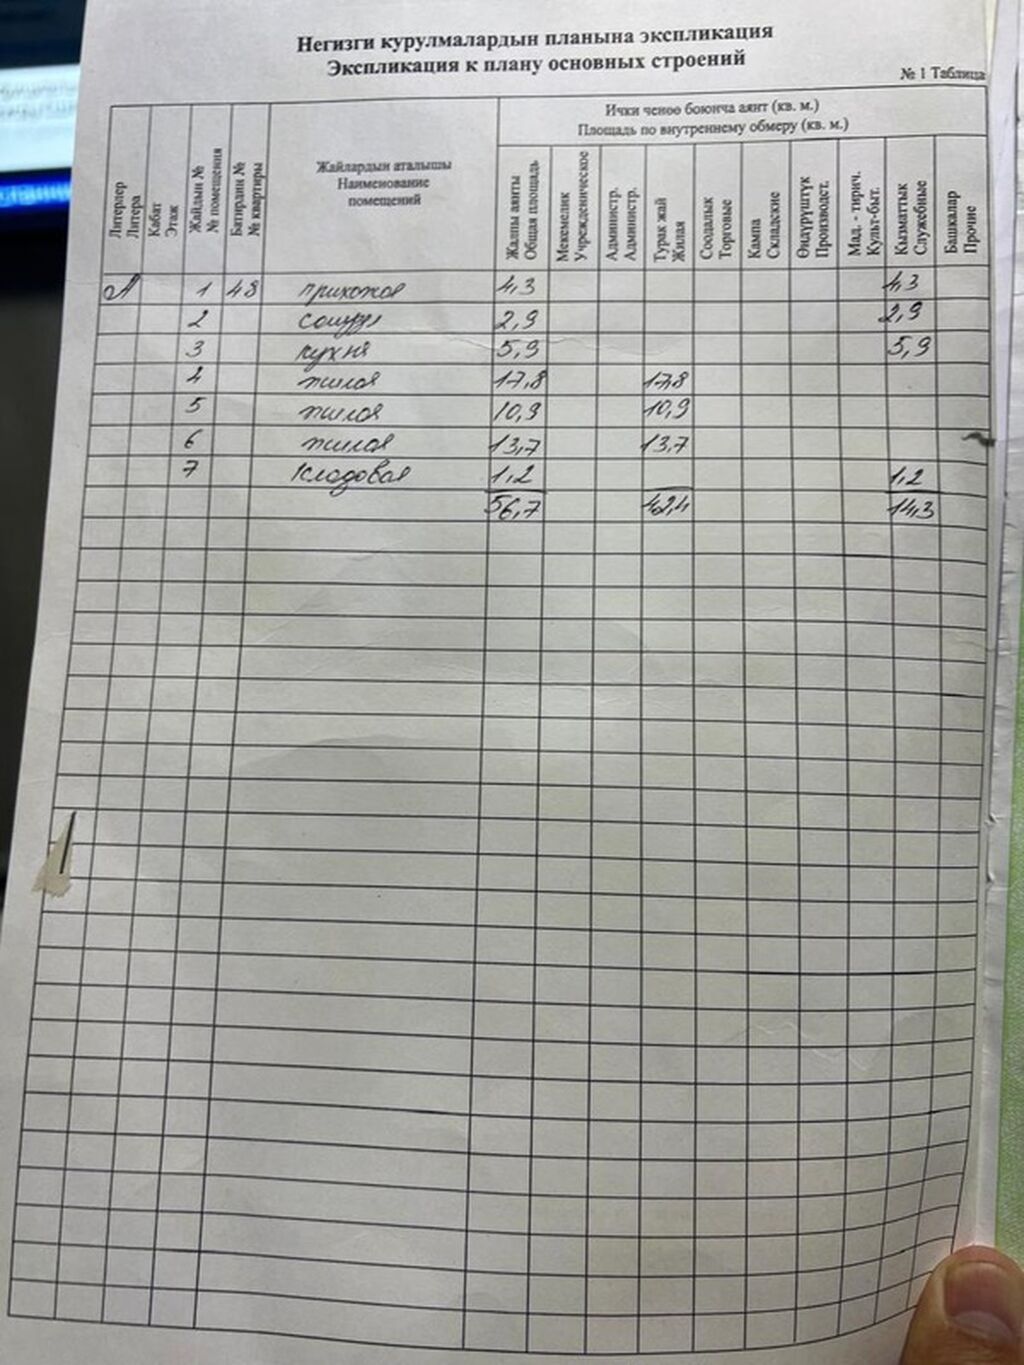 Негизги курулмалардын планына экспликация
Экспликация к плану основных строений
№ 1 Таблица
Литерлер
Литера
Кабат
Этаж
Жайдын №
№ помещения
Батирдин №
№ квартиры
Жайлардын аталышы
Наименование
помещений
Ички ченөө боюнча аянт (кв. м.)
Площадь по внутреннему обмеру (кв. м.)
Жалпы аянты
Общая площадь
Мекемелик
Учрежденическое
Администр.
Администр.
Турак жай
Жилая
Соодалык
Торговые
Кампа
Складские
Өндүрүштүк
Производст.
Мад. - тирич.
Культ-быт.
Кызматтык
Служебные
Башкалар
Прочие
А 1 48 прихожая 4,3 4,3
2 санузл 2,9 2,9
3 кухня 5,9 5,9
4 жилая 17,8 17,8
5 жилая 10,9 10,9
6 жилая 13,7 13,7
7 кладовая 1,2 1,2
56,7 42,4 14,3